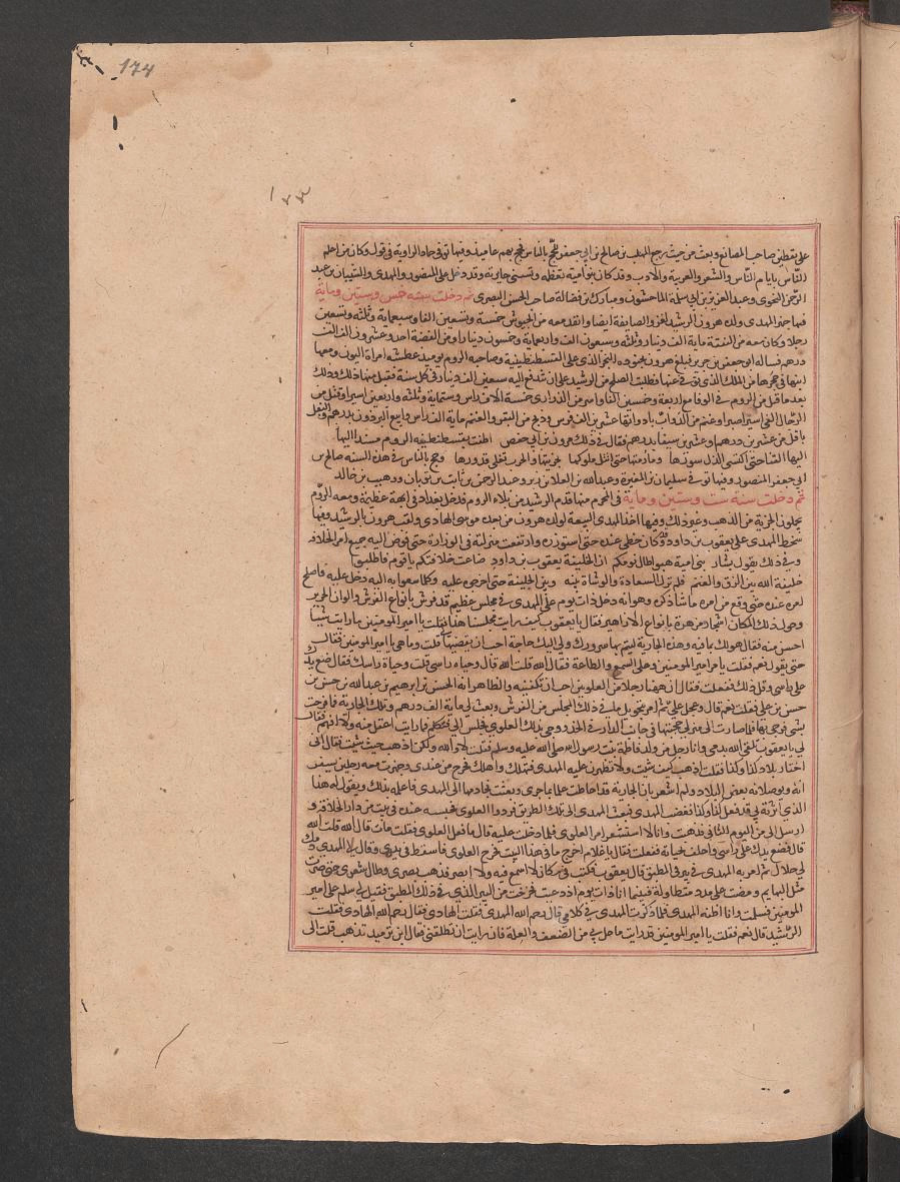 174
١٧٤
على يقطين صاحب المصانع وبعث من حيث رجع المهلب بن صالح بن ابي جعفر فحج بالناس فحج بهم حاميد وفيها توفى حماد الراوية فى قول وكان من اعلم
الناس بايام الناس والشعر والعربية والادب وقد كان بنو امية تعظمه وتسنى جايزته وقد دخل على المنصور والمهدى والشيبان بن عبد
الرحمن النحوى وعبد العزيز بن ابى سلمة الماجشون ومبارك بن فضالة صاحب الحسن البصرى ثم دخلت سنه خمس وستين وماية
فيها جهز المهدى ولده هرون الرشيد لغزو الصايفة ايضا وانفذ معه من الجيوش خمسة وتسعين الفا وسبعماية وثلثه وتسعين
رجلا وكان معه من النفقة ماية الف دينار وثلثه وتسعون الف واربعماية وخمسون دينارا ومن الفضة احد وعشرون الف الف
درهم قاله ابو جعفر بن جرير فبلغ هرون بجنوده الخليج الذى على القسطنطينية وصاحبه الروم يوميد عطشه امراة اليون ومعها
ابنها فى حجرها من الملك الذى توفى عنها فطلبت الصلح من الرشيد على ان تدفع اليه سبعين الف دينار فى كل سنة فقبل منها ذلك وذلك
بعد ما قتل من الروم فى الوقايع اربعة وخمسين الفا واسر من الذرارى خمسة الاف راس وستماية وثلثه واربعين اسيرا وقتل من
الرجال الفى اسير صبرا وغنم من الدواب بادواتها عشرين الف فرس وذبح من البقر والغنم ماية الف راس وابيع البرذون بدرهم والبغل
باقل من عشرين درهم وعشرين سيفا بدرهم فقال فى ذلك مروان بن ابى حفص اطفت بقسطنطينية الروم مسندا اليها
اليها القنا حتى اكتسى الذل سورها وما رمتها حتى اتتك ملوكها بجزيتها والحرب تغلى قدورها وحج بالناس فى هذه السنه صالح بن
ابى جعفر المنصور وفيها توفى سليمان بن المغيرة وعبد الله بن العلا بن زبر وعبد الرحمن بن ثابت بن ثوبان ووهيب بن خالد
ثم دخلت سنة ست وستين وماية فى المحرم منها قدم الرشيد من بلاد الروم فدخل بغداد فى ابهة عظيمة ومعه الروم
يحملون الجزية من الذهب وغير ذلك وفيها اخذ المهدى البيعة لولده هرون من بعد موسى الهادى ولقب هرون بالرشيد وفيها
سخط المهدى على يعقوب بن داود وكان حظى عنده حتى استوزره وارتفعت منزلته فى الوزارة حتى فوض اليه جميع امر الخلافه
وفى ذلك يقول بشار بنى امية هبوا طال نومكم ان الخليفة يعقوب بن داود ضاعت خلافتكم ياقوم فاطلبوا
خليفة الله بين الزق والعود فلم تزل السعادة والوشاة بينه وبين الخليفة حتى اخرجى عليه وكلما سعوا به اليه دخل عليه فاصلح
امره عنده حتى وقع من امره ما شاذكره وهو انه دخل ذات يوم على المهدى فى مجلس عظيم قد فرش بانواع الفرش والوان الحرير
وحول ذلك المكان اشجار مزهرة بانواع الازاهير فقال يا يعقوب كيف رايت مجلسنا هذا فقلت يا امير المومنين ما رايت شيئا
احسن منه فقال هو لك بما فيه وهذه الجارية ليتم بها سرورك ولى اليك حاجة احب ان تقضيها قلت وما هى يا امير المومنين فقال
حتى يقول نعم فقلت يا امير المومنين وعلى السمع والطاعة فقال الله قلت الله قال وحياة راسى قلت وحياة راسك فقال ضع يدك
على راسى وقل ذلك ففعلت فقال ان هاهنا رجلا من العلويين احب ان تكفينيه والظاهر انه الحسن بن ابرهيم بن عبد الله بن حسن بن
حسن بن على فقلت نعم قال وعجل على ثم امر بتحويل ما فى ذلك المجلس من الفرش وبعث لى ماية الف درهم وتلك الجارية فما فرحت
بشى فرحى بها فلما صارت الى منزلى حجبتها فى جانب الدار فى الخدر وجى بذلك العلوى فجلس الى فتكلم فما رايت اعقل منه ولا افهم فقال
لى يا يعقوب تلقى الله بدمى وانا رجل من ولد فاطمة بنت رسول الله صلى الله عليه وسلم فقلت لا والله ولكن اذهب حيث شيت فقال انى
اختار بلاد كذا وكذا فقلت اذهب كيف شيت ولا تظهرن عليه المهدى فتهلك واهلك فخرج من عندى وجهزت معه رجلين يسفرانه
انه ويوصلانه بعض البلاد ولم اشعر بان الجارية قد احاطت علما بما جرى وبعثت بخادمها الى المهدى فاعلمه بذلك ويقول له هذا
الذى اثرته بى قد فعل كذا وكذا فغضب المهدى فبعث المهدى الى تلك الطريق فردوا العلوى فحبسه عنده فى بيت من دار الخلافة و
ارسل الى من اليوم الثانى فذهبت وانا لا استشعر امر العلوى فلما دخلت عليه قال ما فعل العلوى فقلت مات قال الله قلت الله
قال فضع يدك على راسى واحلف بحياته ففعلت فقال يا غلام اخرج ما فى هذا البيت فخرج العلوى فاسقط فى يدى وقال لى المهدى دمك
لى حلال ثم امر به المهدى فى بير فى المطبق قال يعقوب فكنت فى مكان لا اسمع فيه ولا ابصر فذهب بصرى وطال شعرى حتى صرت
مثل البهايم ومضت على مدد متطاولة فبينما انا ذات يوم اذ دعيت فخرجت من البير الذى فى ذلك المطبق فقيل لى سلم على امير
المومنين فسلمت وانا اظنه المهدى فلما ذكرت المهدى فى كلامى قال رحم الله المهدى فقلت الهادى فقال رحم الله الهادى فقلت
الرشيد قال نعم فقلت يا امير المومنين قد رايت ما حل بى من الضعف والعلة فان رايت ان تطلقنى فقال اين تريد تذهب قلت الى